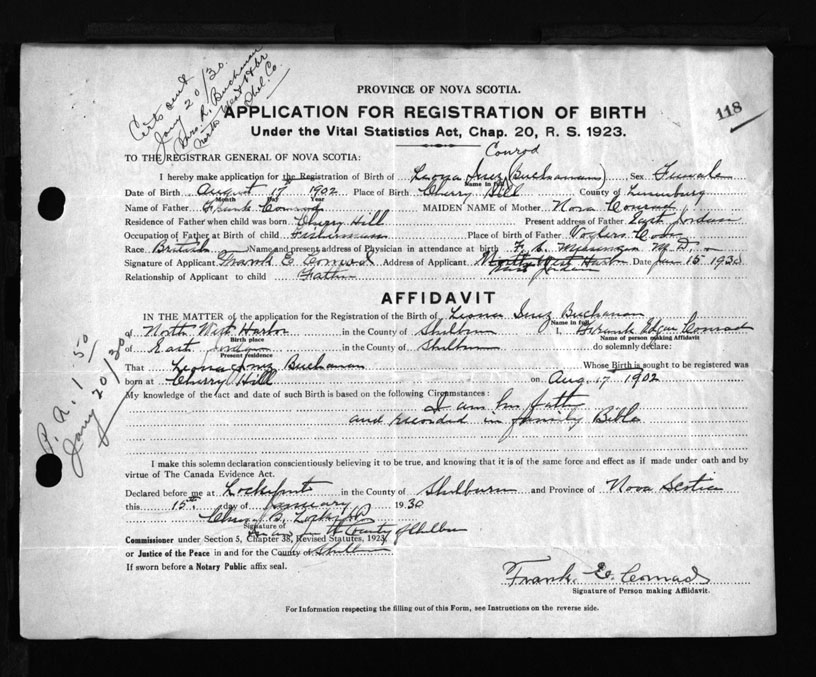 Certs sent
Jany 20/30.
Mrs R. Buchanan
North West Hbr
Shel. Co.
118
PROVINCE OF NOVA SCOTIA.
APPLICATION FOR REGISTRATION OF BIRTH
Under the Vital Statistics Act, Chap. 20, R. S. 1923.
Conrod
TO THE REGISTRAR GENERAL OF NOVA SCOTIA:
I hereby make application for the Registration of Birth of Leona Inez (Buchanan) Sex Female
Name in full
Date of Birth August 17 1902 Place of Birth Cherry Hill County of Lunenburg
Month Day Year
Name of Father Frank Conrad MAIDEN NAME of Mother Nora Conrad
Residence of Father when child was born Cherry Hill Present address of Father East Jordan
Occupation of Father at Birth of child Fisherman Place of birth of Father Voglers Cove
Race British Name and present address of Physician in attendance at birth F. C. M. D.
Signature of Applicant Frank E Conrad Address of Applicant North West Harbor Date Jan 15 1930
East Jordan
Relationship of Applicant to child Father
AFFIDAVIT
IN THE MATTER of the application for the Registration of the Birth of Leona Inez Buchanan
Name in full
of North West Harbor in the County of Shelburne I, Frank Edgar Conrad
Birth place
Name of person making Affidavit
of East Jordan in the County of Shelburne do solemnly declare:
Present residence
That Leona Inez Buchanan Whose Birth is sought to be registered was
born at Cherry Hill on Aug 17 1902
My knowledge of the fact and date of such Birth is based on the following Circumstances:
I am her father
and recorded in family Bible
P. a. 1.50
Jany 20/30
I make this solemn declaration conscientiously believing it to be true, and knowing that it is of the same force and effect as if made under oath and by
virtue of The Canada Evidence Act.
Declared before me at Lockeport in the County of Shelburn and Province of Nova Scotia
this 15th day of January 1930
Signature of
in and for the County of Shelburn
Commissioner under Section 5, Chapter 38, Revised Statutes, 1923,
or Justice of the Peace in and for the County of Shelburn
If sworn before a Notary Public affix seal.
Frank. E. Conrad
Signature of Person making Affidavit.
For Information respecting the filling out of this Form, see Instructions on the reverse side.